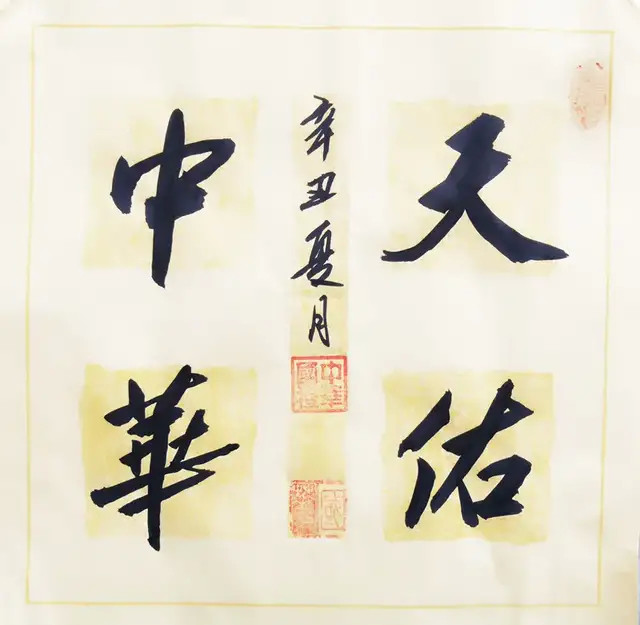 天佑
中華
辛丑夏月